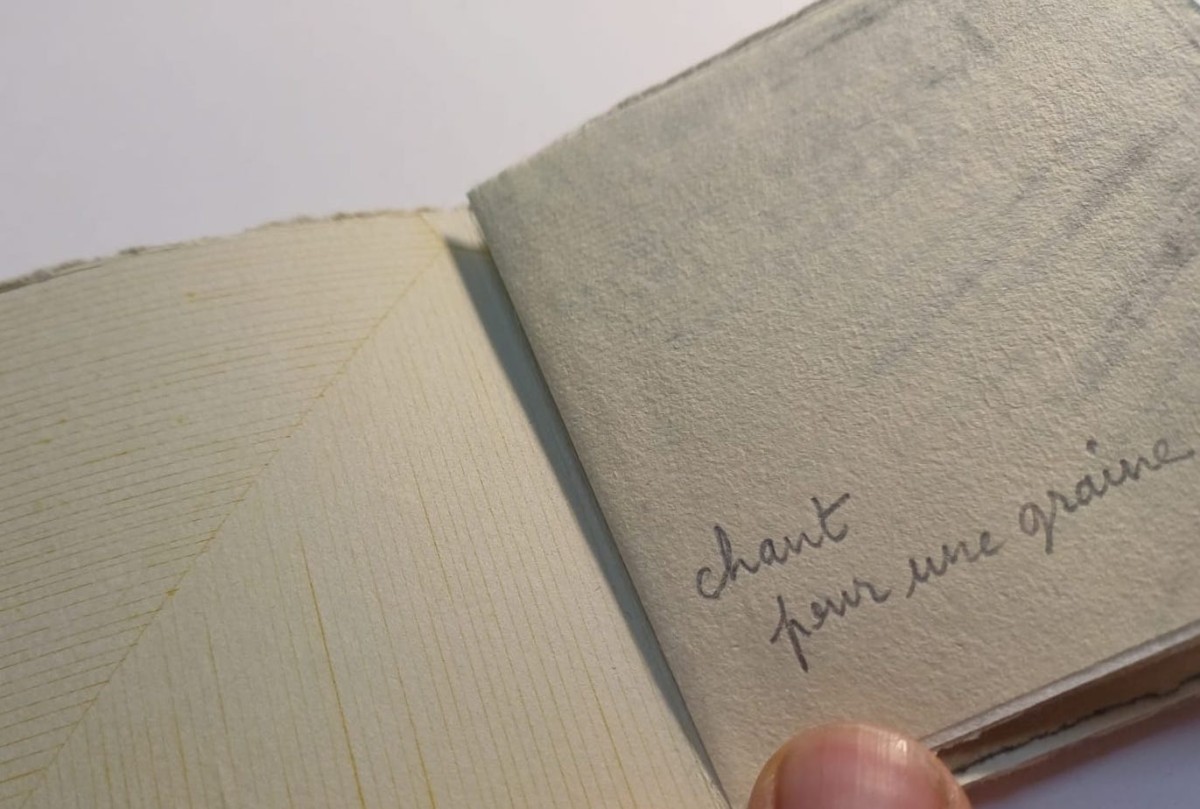 chant
pour une graine